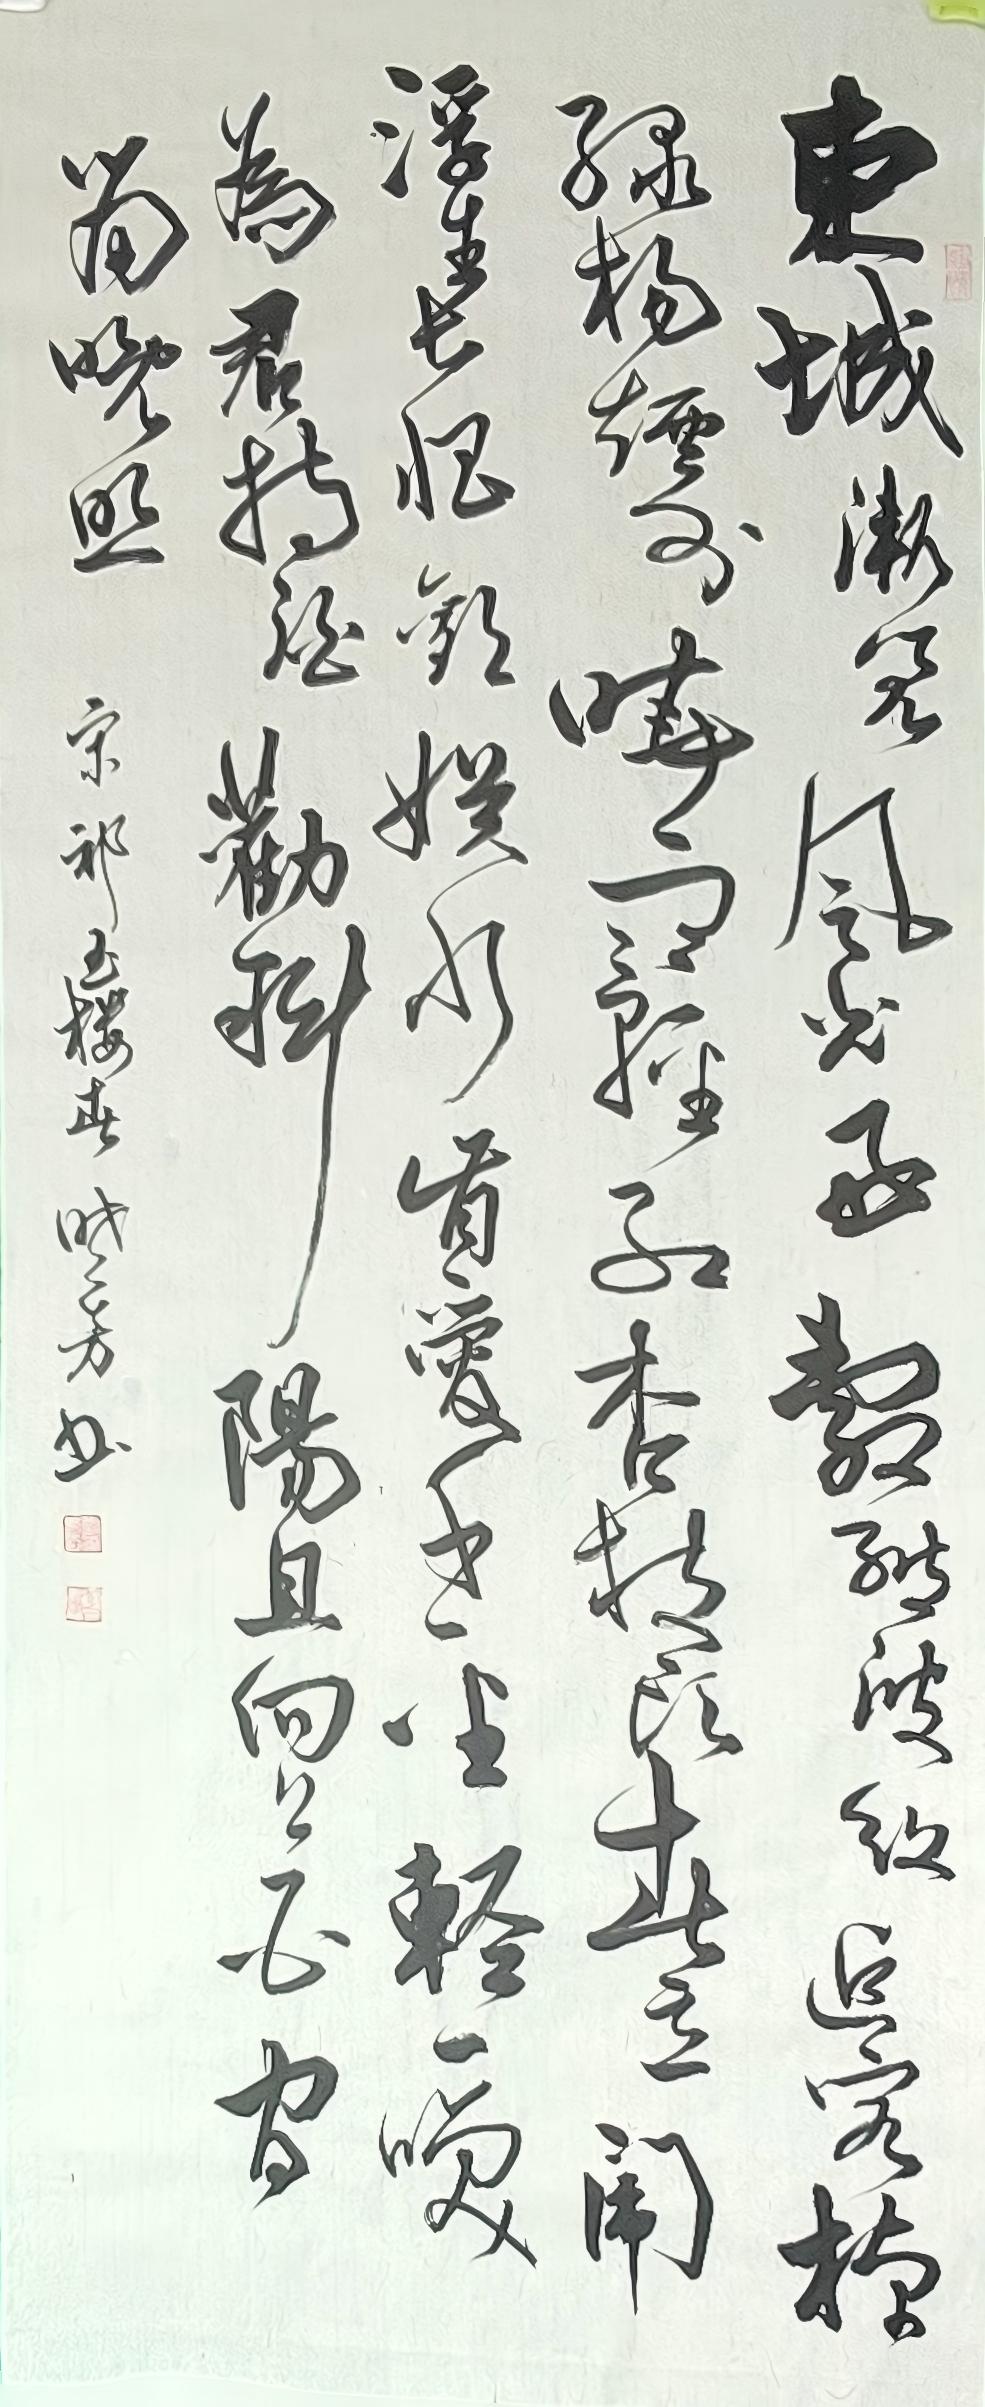 東城漸覺風光好縠皺波紋迎客棹
綠楊煙外曉雲輕紅杏枝頭春意鬧
浮生長恨歡娛少肯愛千金輕一笑
為君持酒勸斜陽且向花間
留晚照 宋祁玉楼春 晓芳书